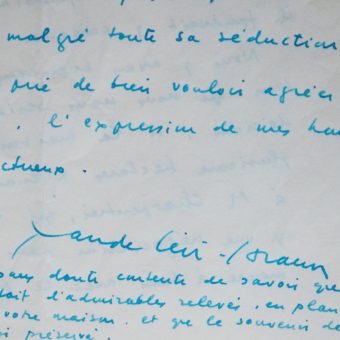 malgré toute sa séduction
prié de bien vouloir agréer
. l'expression de mes hom
ctueux.
Claude Lévi-Strauss
sans doute contente de savoir que
tait d'admirables relevés, en plan
votre maison, et que le souvenir de
si préservé.